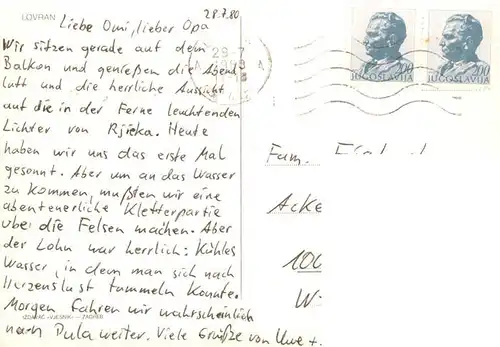 LOVRAN
28.7.80
Liebe Omi, lieber Opa
Wir sitzen gerade auf dem
Balkon und genießen die Abend
luft und die herrliche Aussicht
auf die in der Ferne leuchtenden
Lichter von Rjieka. Heute
haben wir uns das erste Mal
gesonnt. Aber um an das Wasser
zu kommen, mußten wir eine
abenteuerliche Kletterpartie
über die Felsen machen. Aber
der Lohn war herrlich: Kühles
Wasser, in dem man sich nach
Herzenslust tummeln konnte.
Morgen fahren wir wahrscheinlich
nach Pula weiter. Viele Grüße von Uwe +
IZDAVAČ «VJESNIK» — ZAGREB
29-7
JUGOSLAVIJA
JUGOSLAVIJA
Fam.
Acke
100